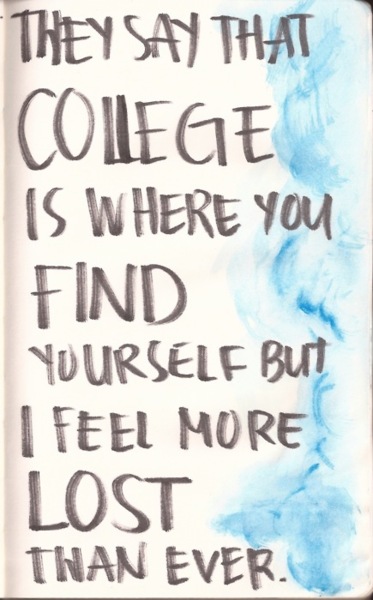 THEY SAY THAT
COLLEGE
IS WHERE YOU
FIND
YOURSELF BUT
I FEEL MORE
LOST
THAN EVER.